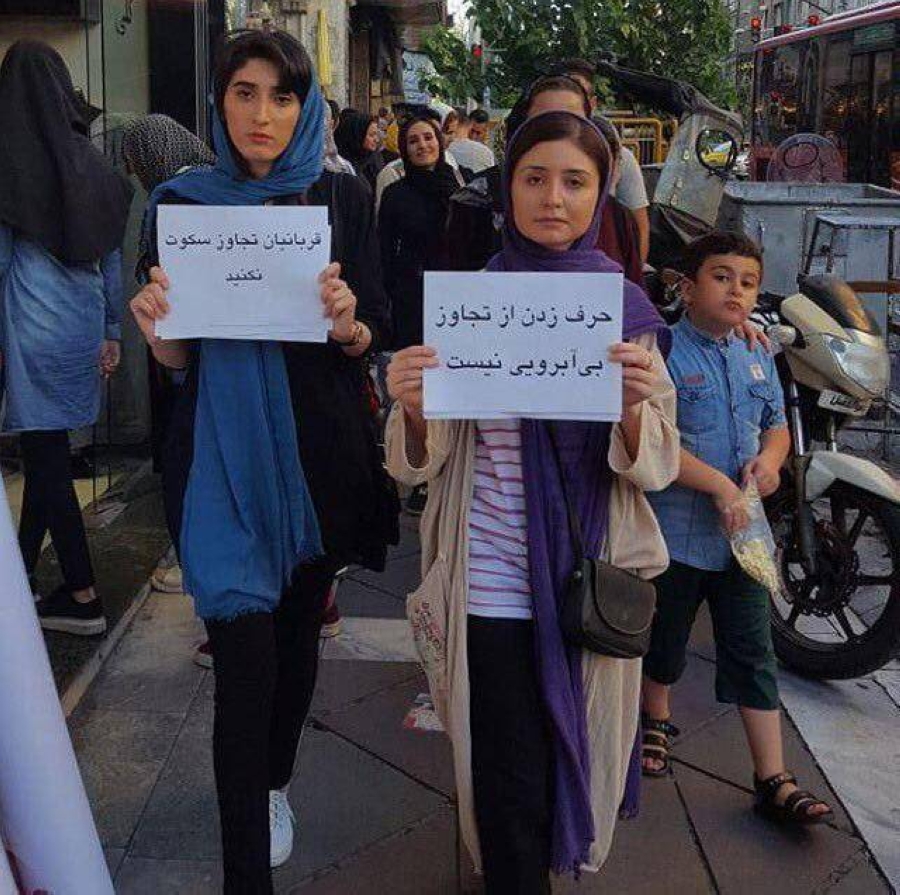 قربانیان تجاوز سکوت
نکنید
حرف زدن از تجاوز
بی‌آبرویی نیست